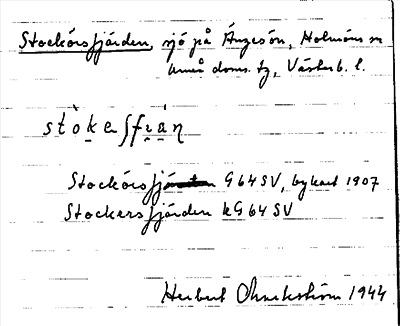 Stockörsfjärden, sjö på Ängesön, Holmöns sn
Umeå doms. tg, Västerb. l.
stòkeṣfiạ́ṇ
Stockörsfjärden G64SV, bykart 1907
Stockersfjärden kG64SV
Herbert 1944